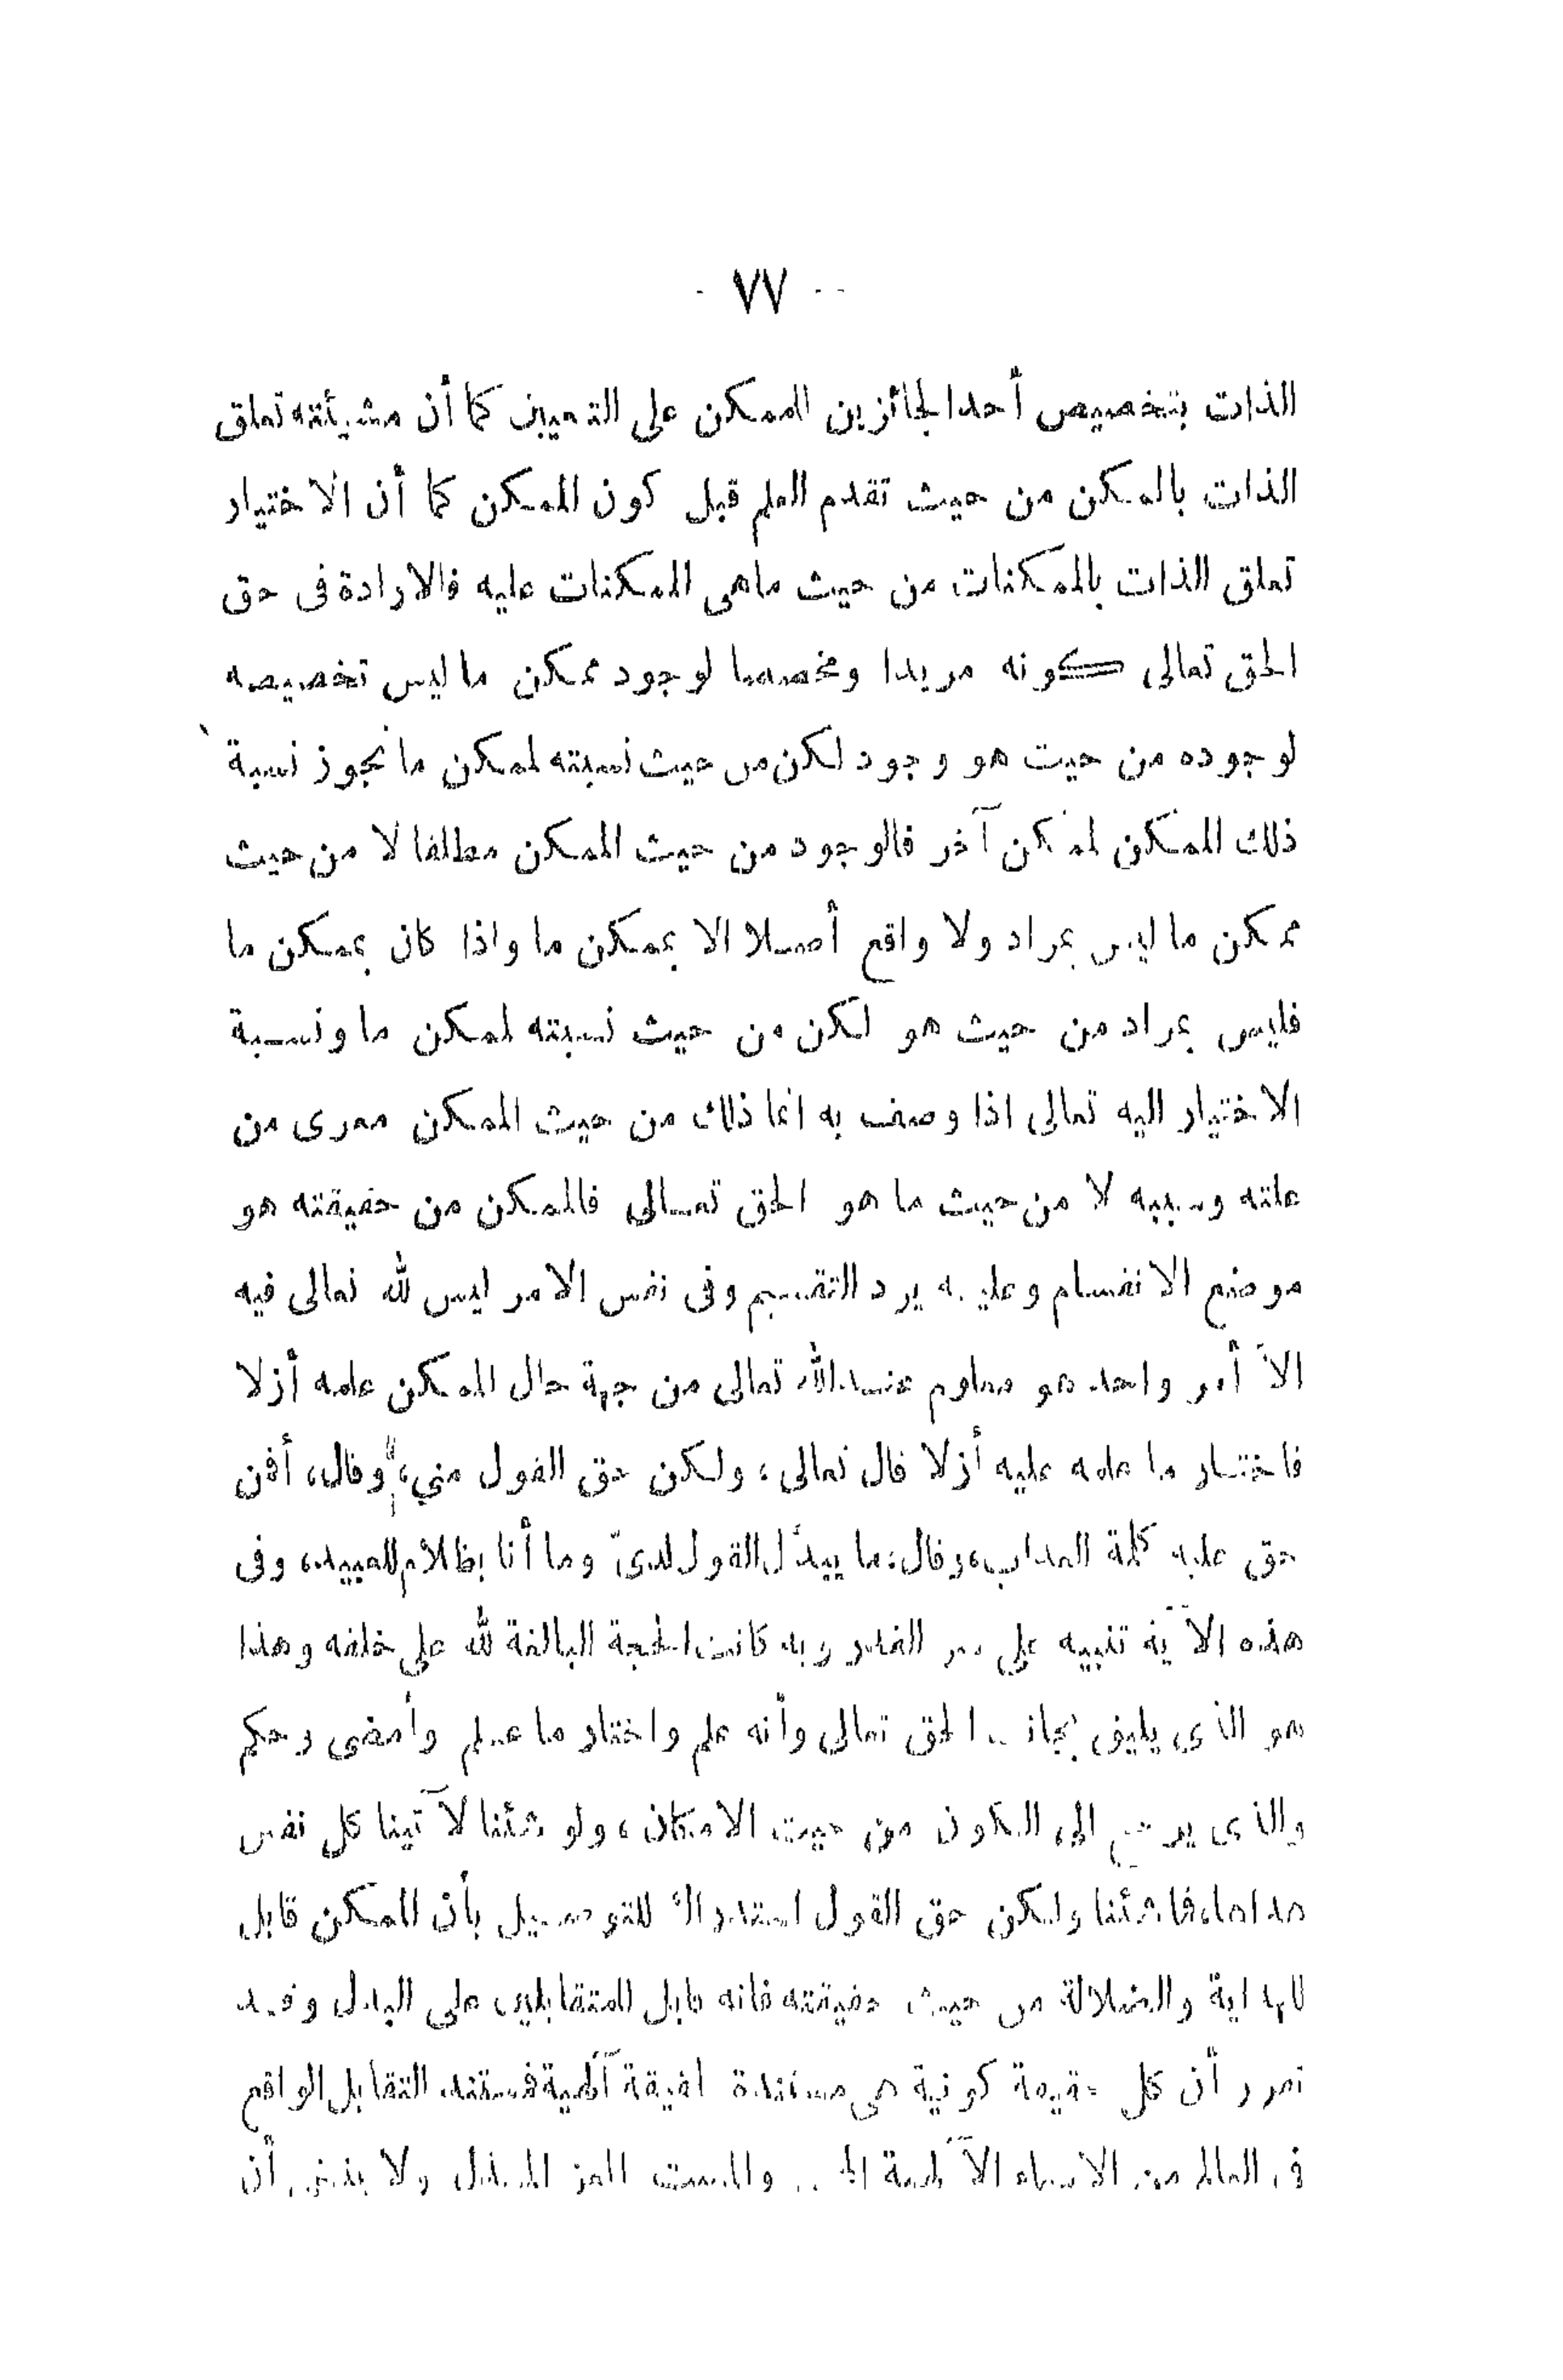 - ٧٧ -
الذات بتخصيص أحد الجائزين للممكن على التعيين كما أن مشيئته تعلق
الذات بالممكن من حيث تقدم العلم قبل كون الممكن كما أن الاختيار
تعلق الذات بالممكنات من حيث ماهى الممكنات عليه فالارادة فى حق
الحق تعالى كونه مريدا ومخصصا لوجود ممكن ما ليس تخصيصه
لوجوده من حيث هو وجود لكن من حيث نسبته لممكن ما تجوز نسبة
ذلك الممكن لممكن آخر فالوجود من حيث الممكن مطلقا لا من حيث
ممكن ما ليس بمراد ولا واقع أصلا الا بممكن ما واذا كان بممكن ما
فليس بمراد من حيث هو لكن من حيث نسبته لممكن ما ونسبة
الاختيار اليه تعالى اذا وصف به انما ذلك من حيث الممكن معرى من
علته وسببه لا من حيث ما هو الحق تعالى فالممكن من حقيقته هو
موضع الانقسام وعليه يرد التقسيم وفى نفس الامر ليس لله تعالى فيه
الا أمر واحد هو معلوم عند الله تعالى من جهة حال الممكن علمه أزلا
فاختار ما علمه عليه أزلا قال تعالى، ولكن حق القول مني، وقال، أفمن
حق عليه كلمة العذاب، وقال: ما يبدّل القول لدىّ وما أنا بظلام للعبيد، وفى
هذه الآية تنبيه على سر القدر وبه كانت الحجة البالغة لله على خلقه وهذا
هو الذى يليق بجانب الحق تعالى وأنه علم واختار ما علم وأمضى وحكم
والذى يرجع الى الكون من حيث الامكان، ولو شئنا لآتينا كل نفس
هداها، فما شئنا ولكن حق القول استدراك للتوصيل بأن الممكن قابل
للهداية والضلالة من حيث حقيقته فانه قابل للمتقابلين على البدل وقد
تقرر أن كل حقيقة كونية هى مستندة لحقيقة آلهية فمستند التقابل الواقع
فى العالم من الاسماء الآلهية المحيى والمميت المعز المذل ولا ينبغى أن